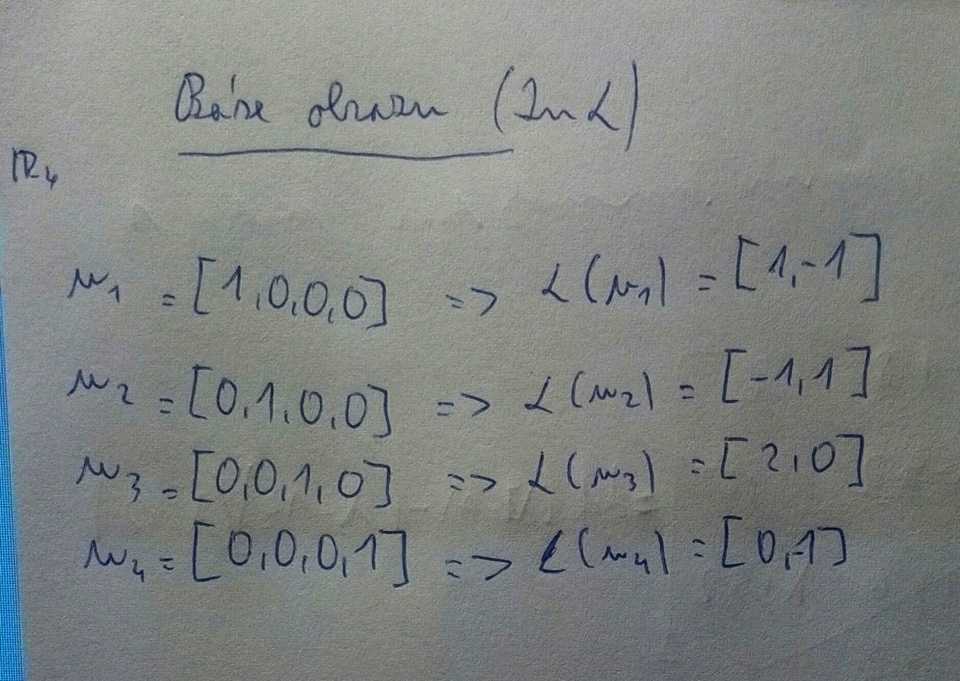 Báze obrazu (Im L)
R4
u1 = [1,0,0,0] => L(u1) = [1,-1]
u2 = [0,1,0,0] => L(u2) = [-1,1]
u3 = [0,0,1,0] => L(u3) = [2,0]
u4 = [0,0,0,1] => L(u4) = [0,-1]